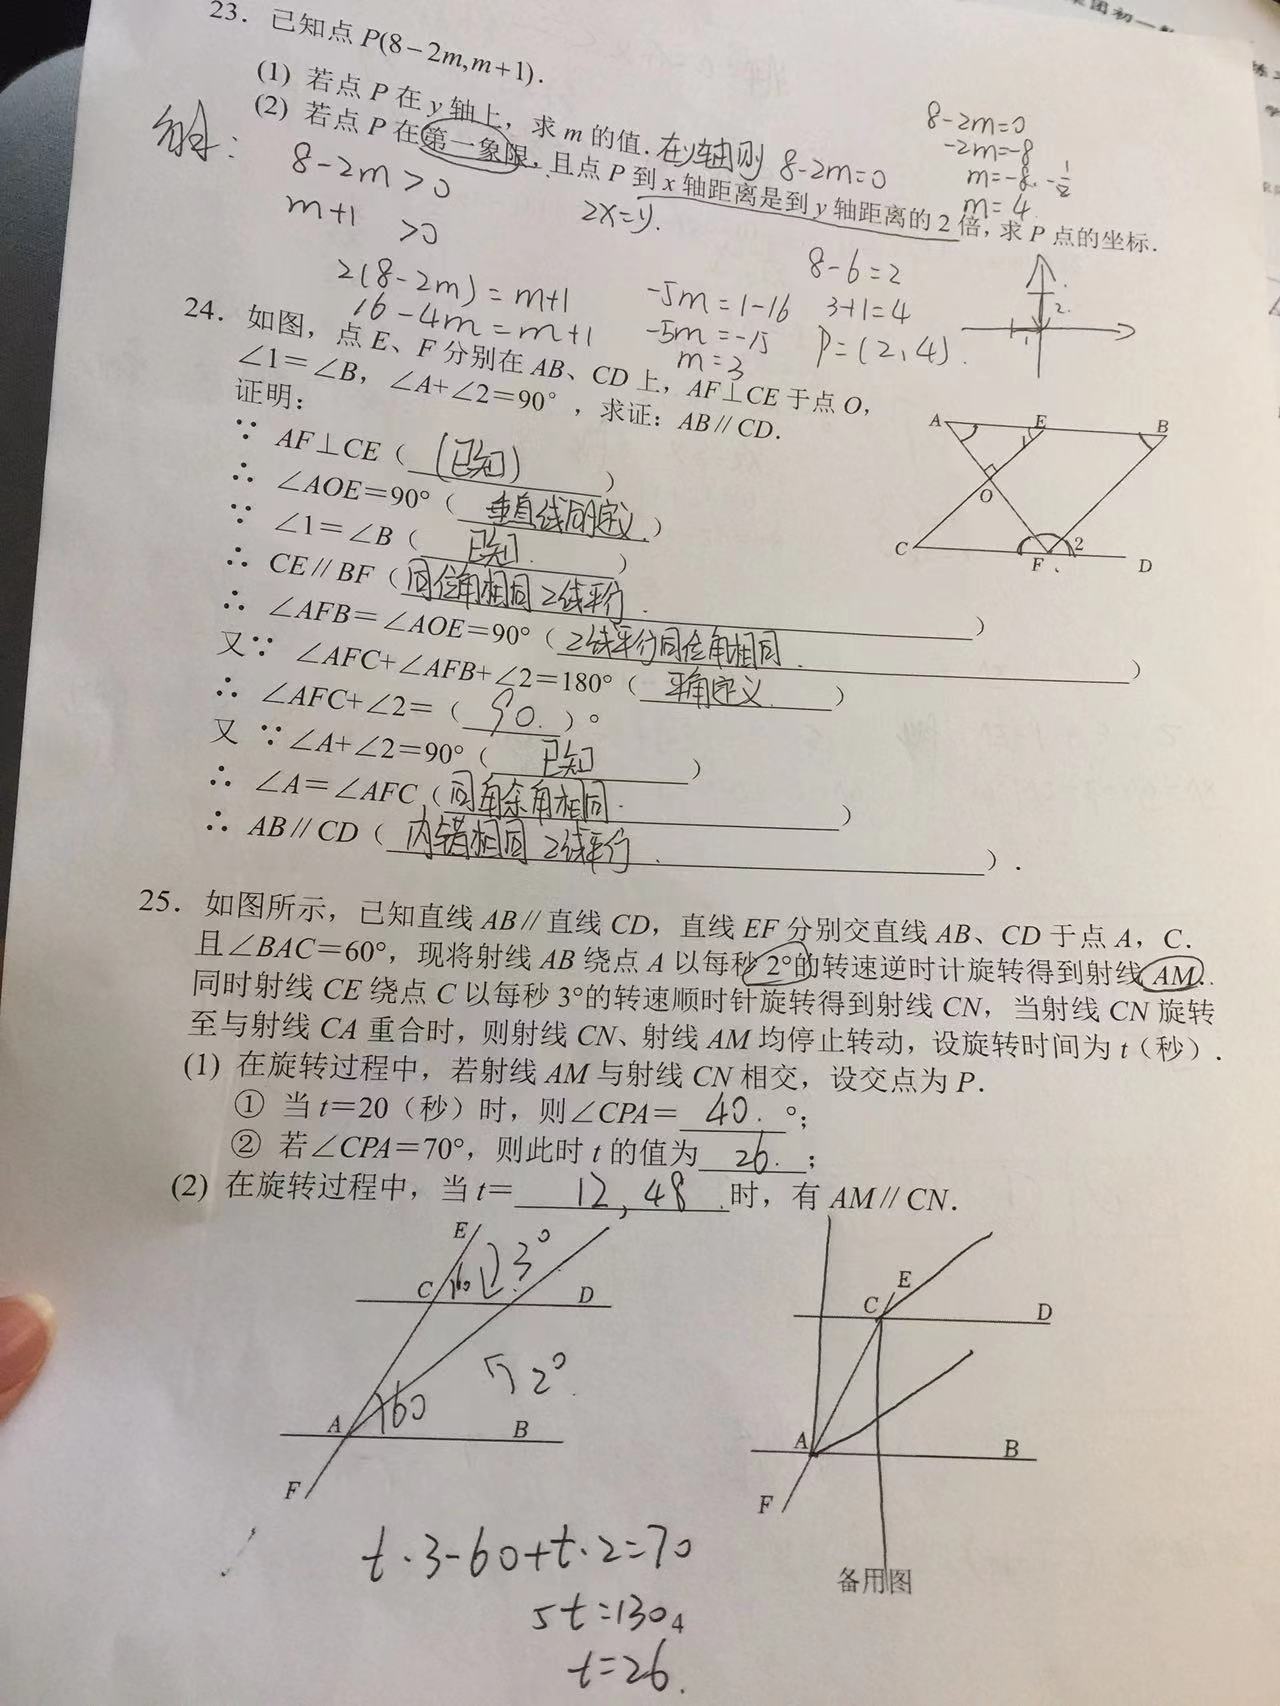 23. 已知点 P(8－2m,m＋1).
(1) 若点 P 在 y 轴上，求 m 的值.
在y轴则 8-2m=0
8-2m=0
-2m=-8
m=-8·-1/2
m=4
(2) 若点 P 在第一象限，且点 P 到 x 轴距离是到 y 轴距离的 2 倍，求 P 点的坐标.
解：
8-2m>0
m+1 >0
2x=y.
2(8-2m)=m+1
16-4m=m+1
-5m=1-16
-5m=-15
m=3
8-6=2
3+1=4
P=(2,4).
2.
1
24. 如图，点 E、F 分别在 AB、CD 上，AF⊥CE 于点 O，
∠1＝∠B，∠A+∠2=90°，求证：AB // CD.
证明：
∵ AF⊥CE（ (已知) ）
∴ ∠AOE＝90°（ 垂直线的定义 ）
∵ ∠1＝∠B（ 已知. ）
∴ CE // BF（同位角相同 2线平行. ）
∴ ∠AFB＝∠AOE＝90°（ 2线平行同位角相同. ）
又∵ ∠AFC+∠AFB+∠2＝180°（ 平角定义. ）
∴ ∠AFC+∠2＝（ 90. ）°
又 ∵ ∠A+∠2＝90°（ 已知 ）
∴ ∠A＝∠AFC（同角余角相同. ）
∴ AB // CD（ 内错相同 2线平行. ）.
A E B
1
O
C F 2 D
25. 如图所示，已知直线 AB // 直线 CD，直线 EF 分别交直线 AB、CD 于点 A，C.
且∠BAC＝60°，现将射线 AB 绕点 A 以每秒 2°的转速逆时计旋转得到射线 AM.
同时射线 CE 绕点 C 以每秒 3°的转速顺时针旋转得到射线 CN，当射线 CN 旋转
至与射线 CA 重合时，则射线 CN、射线 AM 均停止转动，设旋转时间为 t（秒）.
(1) 在旋转过程中，若射线 AM 与射线 CN 相交，设交点为 P.
① 当 t＝20（秒）时，则∠CPA＝ 40. °；
② 若∠CPA＝70°，则此时 t 的值为 26. ；
(2) 在旋转过程中，当 t＝ 12, 48 时，有 AM // CN.
E
C 60 3° D
2°
A 60 B
F
E
C D
A B
F
备用图
t·3-60+t·2=70
5t=130
4
t=26.